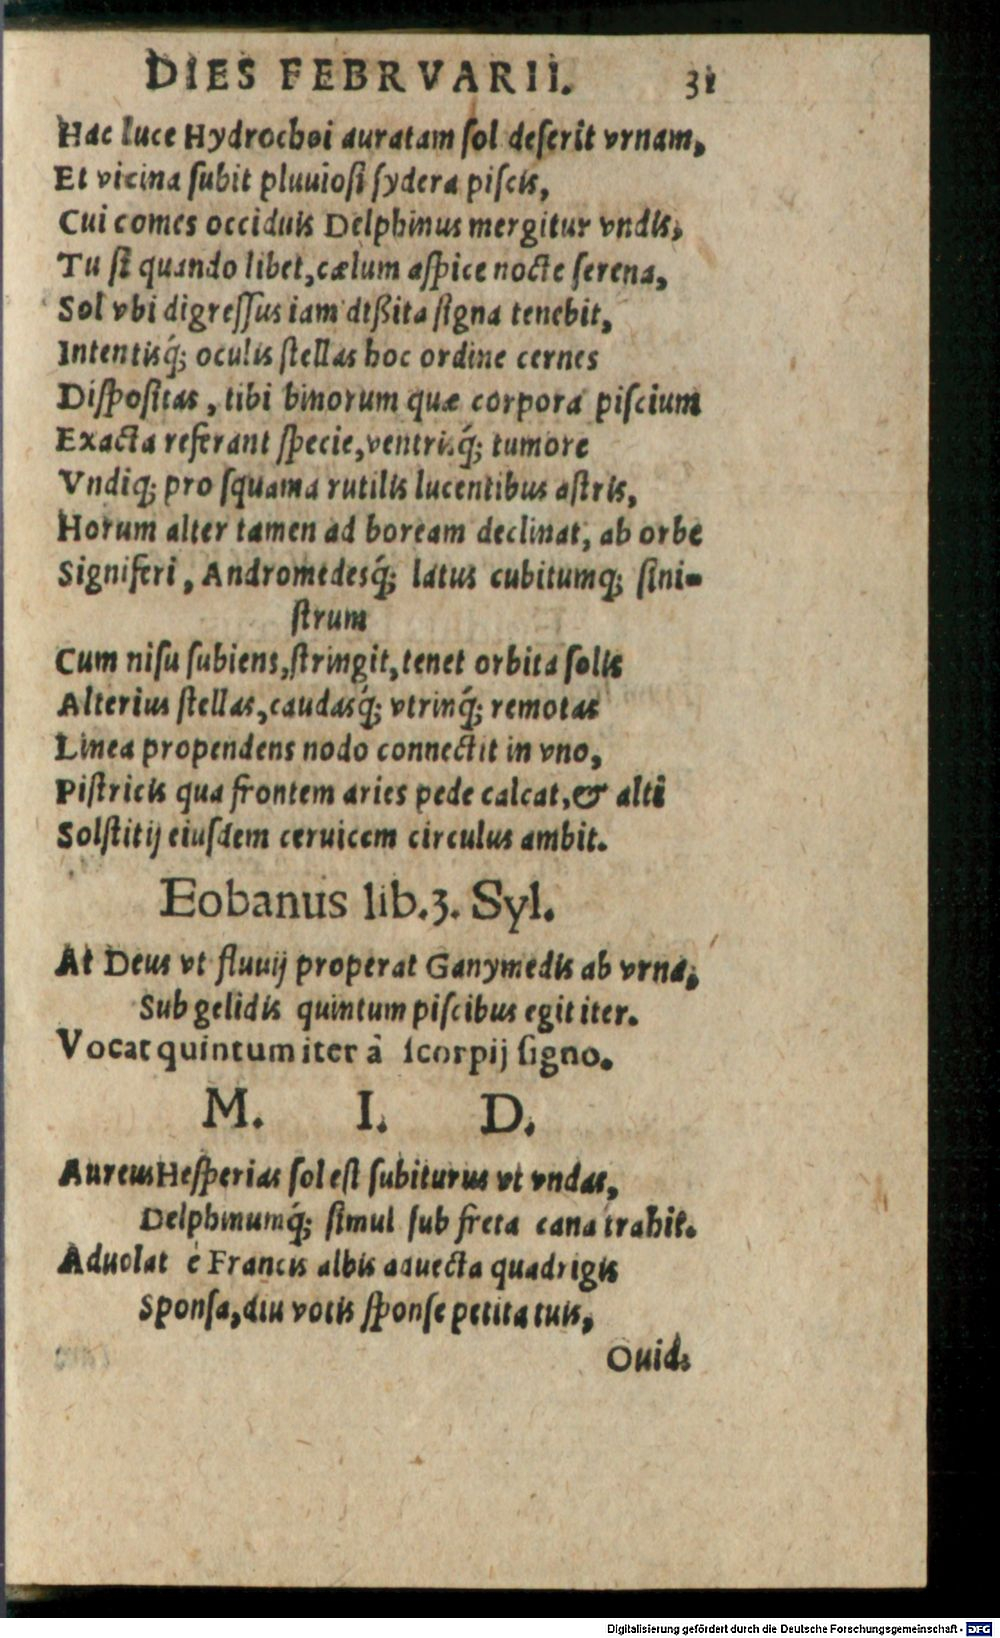 DIES FEBRVARII. 31
Hac luce Hydrochoi auratam ſol deſerit vrnam,
Et vicina ſubit pluuioſi ſydera piſcis,
Cui comes occiduis Delphinus mergitur vndis,
Tu ſi quando libet, cælum aſpice nocte ſerena,
Sol vbi digreſſus iam dißita ſigna tenebit,
Intentisq́; oculis ſtellas hoc ordine cernes
Diſpoſitas, tibi binorum quæ corpora piſcium
Exacta referant ſpecie, ventrisq́; tumore
Vndiq; pro ſquama rutilis lucentibus aſtris,
Horum alter tamen ad boream declinat, ab orbe
Signiferi, Andromedesq́; latus cubitumq; ſini-
ſtrum
Cum niſu ſubiens, ſtringit, tenet orbita ſolis
Alterius ſtellas, caudasq́; vtrinq́; remotas
Linea propendens nodo connectit in vno,
Piſtricis qua frontem aries pede calcat, & alti
Solſtitij eiuſdem ceruicem circulus ambit.
Eobanus lib.3. Syl.
At Deus vt fluuij properat Ganymedis ab vrna,
Sub gelidis quintum piſcibus egit iter.
Vocat quintum iter à ſcorpij ſigno.
M. I. D.
Aureus Heſperias ſol eſt ſubiturus vt vndas,
Delphinumq́; ſimul ſub freta cana trahit.
Aduolat è Francis albis aduecta quadrigis
Sponſa, diu votis ſponſe petita tuis,
Ouid.
Digitalisierung gefördert durch die Deutsche Forschungsgemeinschaft - DFG